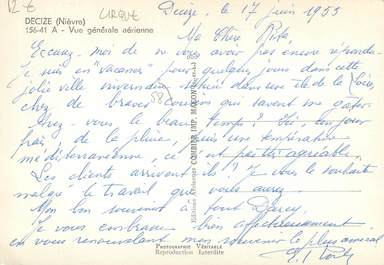 12 €
CIRQUE
DECIZE (Nièvre)
156-41 A - Vue générale aérienne
Decize, le 17 juin 1953
Ma Chère Rita,
Excusez-moi de ne vous avoir pas encore répondu.
Je suis en "vacances" pour quelques jours dans cette
jolie ville nivernaise, dans une île de la Loire,
chez de braves cousins qui savent me gâter.
Avez-vous le beau temps ? Ici, un jour
frais, de la pluie, puis une température
méditerranéenne, c'est peu agréable.
Les clients arrivent-ils ? Je vous le souhaite
malgré le travail que vous aurez.
Mon bon souvenir à tout
Je vous embrasse bien affectueusement
en vous renouvelant mon souvenir le plus amical
Editions COMBIER IMP. MACON
PHOTOGRAPHIE VÉRITABLE
Reproduction Interdite